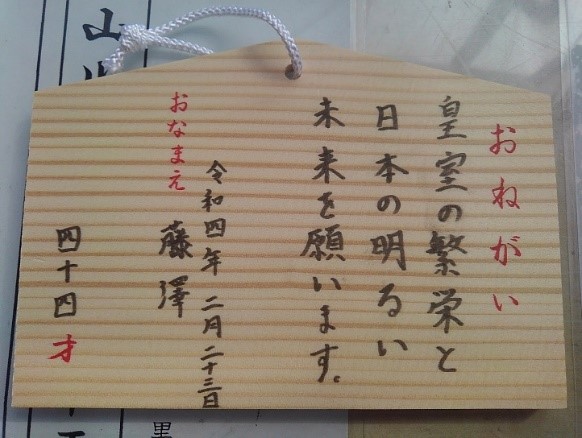 おねがい
皇室の繁栄と
日本の明るい
未来を願います。
令和四年 二月二十三日
おなまえ
藤澤
四十四才